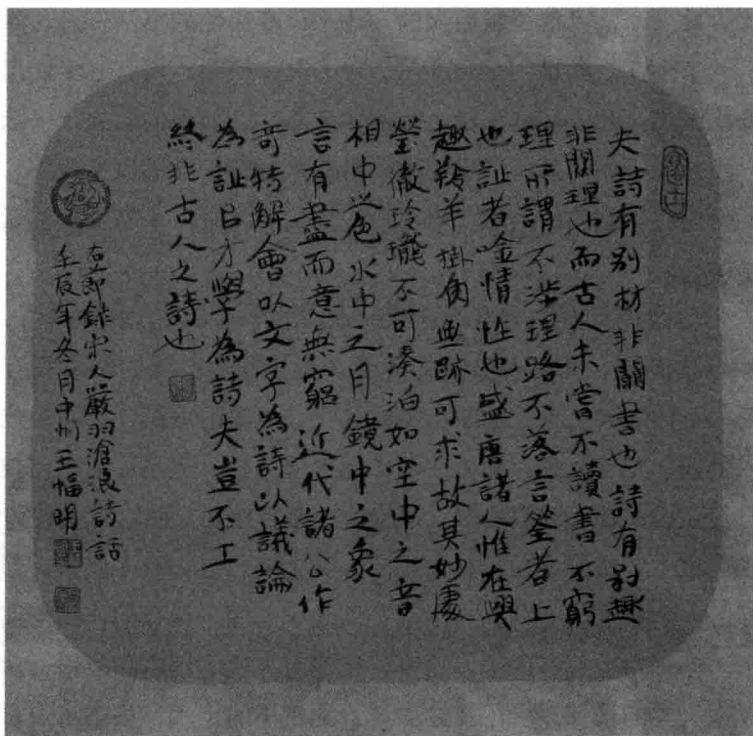 夫詩有别材非關書也詩有别趣
非關理也而古人未嘗不讀書不窮
理所謂不涉理路不落言筌者上
也詩者唫情性也盛唐諸人惟在興
趣羚羊掛角無跡可求故其妙處
瑩徹玲瓏不可湊泊如空中之音
相中之色水中之月鏡中之象
言有盡而意無窮近代諸公作
奇特解會以文字為詩以議論
為詩以才學為詩夫豈不工
終非古人之詩也
右節錄宋人嚴羽滄浪詩話
壬辰年冬月中州王幅明